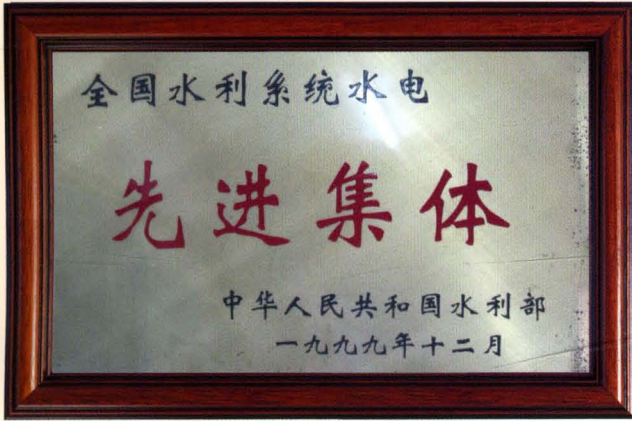 全国水利系统水电
先进集体
中华人民共和国水利部
一九九九年十二月